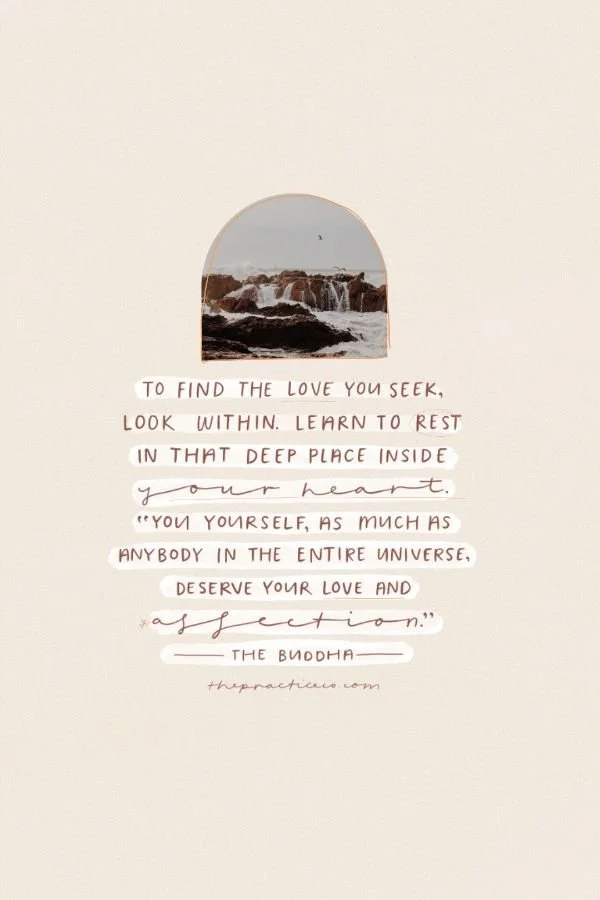 TO FIND THE LOVE YOU SEEK,
LOOK WITHIN. LEARN TO REST
IN THAT DEEP PLACE INSIDE
your heart.
“YOU YOURSELF, AS MUCH AS
ANYBODY IN THE ENTIRE UNIVERSE,
DESERVE YOUR LOVE AND
affection.”
— THE BUDDHA —
thepracticeco.com